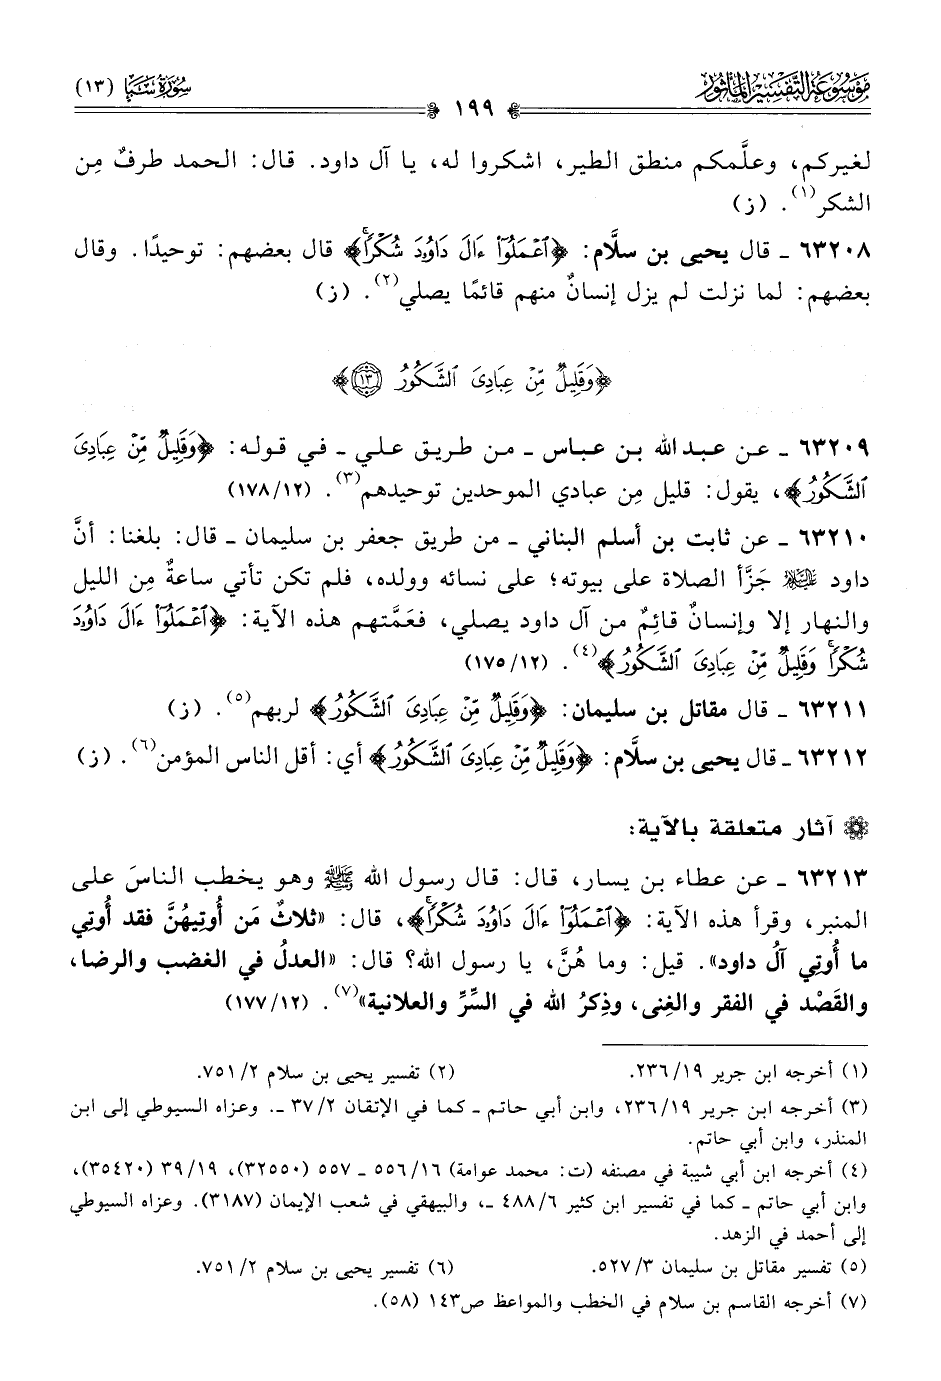 مَوْسُوعَة التَّفْسِير المَأْثُور
سُورَة سَبَإ (١٣)
١٩٩
لغيركم، وعلَّمكم منطق الطير، اشكروا له، يا آل داود. قال: الحمد طرفٌ مِن
الشكر(١). (ز)
٦٣٢٠٨ ـ قال يحيى بن سلَّام: ﴿ٱعْمَلُوٓا۟ ءَالَ دَاوُۥدَ شُكْرًا﴾ قال بعضهم: توحيدًا. وقال
بعضهم: لما نزلت لم يزل إنسانٌ منهم قائمًا يصلي(٢). (ز)
﴿وَقَلِيلٌ مِّنْ عِبَادِىَ ٱلشَّكُورُ ١٣﴾
٦٣٢٠٩ ـ عن عبد الله بن عباس ـ من طريق علي ـ في قوله: ﴿وَقَلِيلٌ مِّنْ عِبَادِىَ
ٱلشَّكُورُ﴾، يقول: قليل مِن عبادي الموحدين توحيدهم(٣). (١٢/ ١٧٨)
٦٣٢١٠ ـ عن ثابت بن أسلم البناني ـ من طريق جعفر بن سليمان ـ قال: بلغنا: أنَّ
داود عليه السلام جَزَّأ الصلاة على بيوته؛ على نسائه وولده، فلم تكن تأتي ساعةٌ مِن الليل
والنهار إلا وإنسانٌ قائِمٌ من آل داود يصلي، فعَمَّتهم هذه الآية: ﴿ٱعْمَلُوٓا۟ ءَالَ دَاوُۥدَ
شُكْرًا وَقَلِيلٌ مِّنْ عِبَادِىَ ٱلشَّكُورُ﴾(٤). (١٢/ ١٧٥)
٦٣٢١١ ـ قال مقاتل بن سليمان: ﴿وَقَلِيلٌ مِّنْ عِبَادِىَ ٱلشَّكُورُ﴾ لربهم(٥). (ز)
٦٣٢١٢ ـ قال يحيى بن سلَّام: ﴿وَقَلِيلٌ مِّنْ عِبَادِىَ ٱلشَّكُورُ﴾ أي: أقل الناس المؤمن(٦). (ز)
آثار متعلقة بالآية:
٦٣٢١٣ ـ عن عطاء بن يسار، قال: قال رسول الله ﷺ وهو يخطب الناسَ على
المنبر، وقرأ هذه الآية: ﴿ٱعْمَلُوٓا۟ ءَالَ دَاوُۥدَ شُكْرًا﴾، قال: «ثلاثٌ مَن أُوتِيهُنَّ فقد أُوتي
ما أُوتي آلُ داود». قيل: وما هُنَّ، يا رسول الله؟ قال: «العدلُ في الغضب والرضا،
والقَصْد في الفقر والغِنى، وذِكرُ الله في السِّرِّ والعلانية»(٧). (١٢/ ١٧٧)
(١) أخرجه ابن جرير ١٩/ ٢٣٦. (٢) تفسير يحيى بن سلام ٢/ ٧٥١.
(٣) أخرجه ابن جرير ١٩/ ٢٣٦، وابن أبي حاتم ـ كما في الإتقان ٢/ ٣٧ ـ. وعزاه السيوطي إلى ابن
المنذر، وابن أبي حاتم.
(٤) أخرجه ابن أبي شيبة في مصنفه (ت: محمد عوامة) ١٦/ ٥٥٦ ـ ٥٥٧ (٣٢٥٥٠)، ١٩/ ٣٩ (٣٥٤٢٠)،
وابن أبي حاتم ـ كما في تفسير ابن كثير ٦/ ٤٨٨ ـ، والبيهقي في شعب الإيمان (٣١٨٧). وعزاه السيوطي
إلى أحمد في الزهد.
(٥) تفسير مقاتل بن سليمان ٣/ ٥٢٧. (٦) تفسير يحيى بن سلام ٢/ ٧٥١.
(٧) أخرجه القاسم بن سلام في الخطب والمواعظ ص١٤٣ (٥٨).